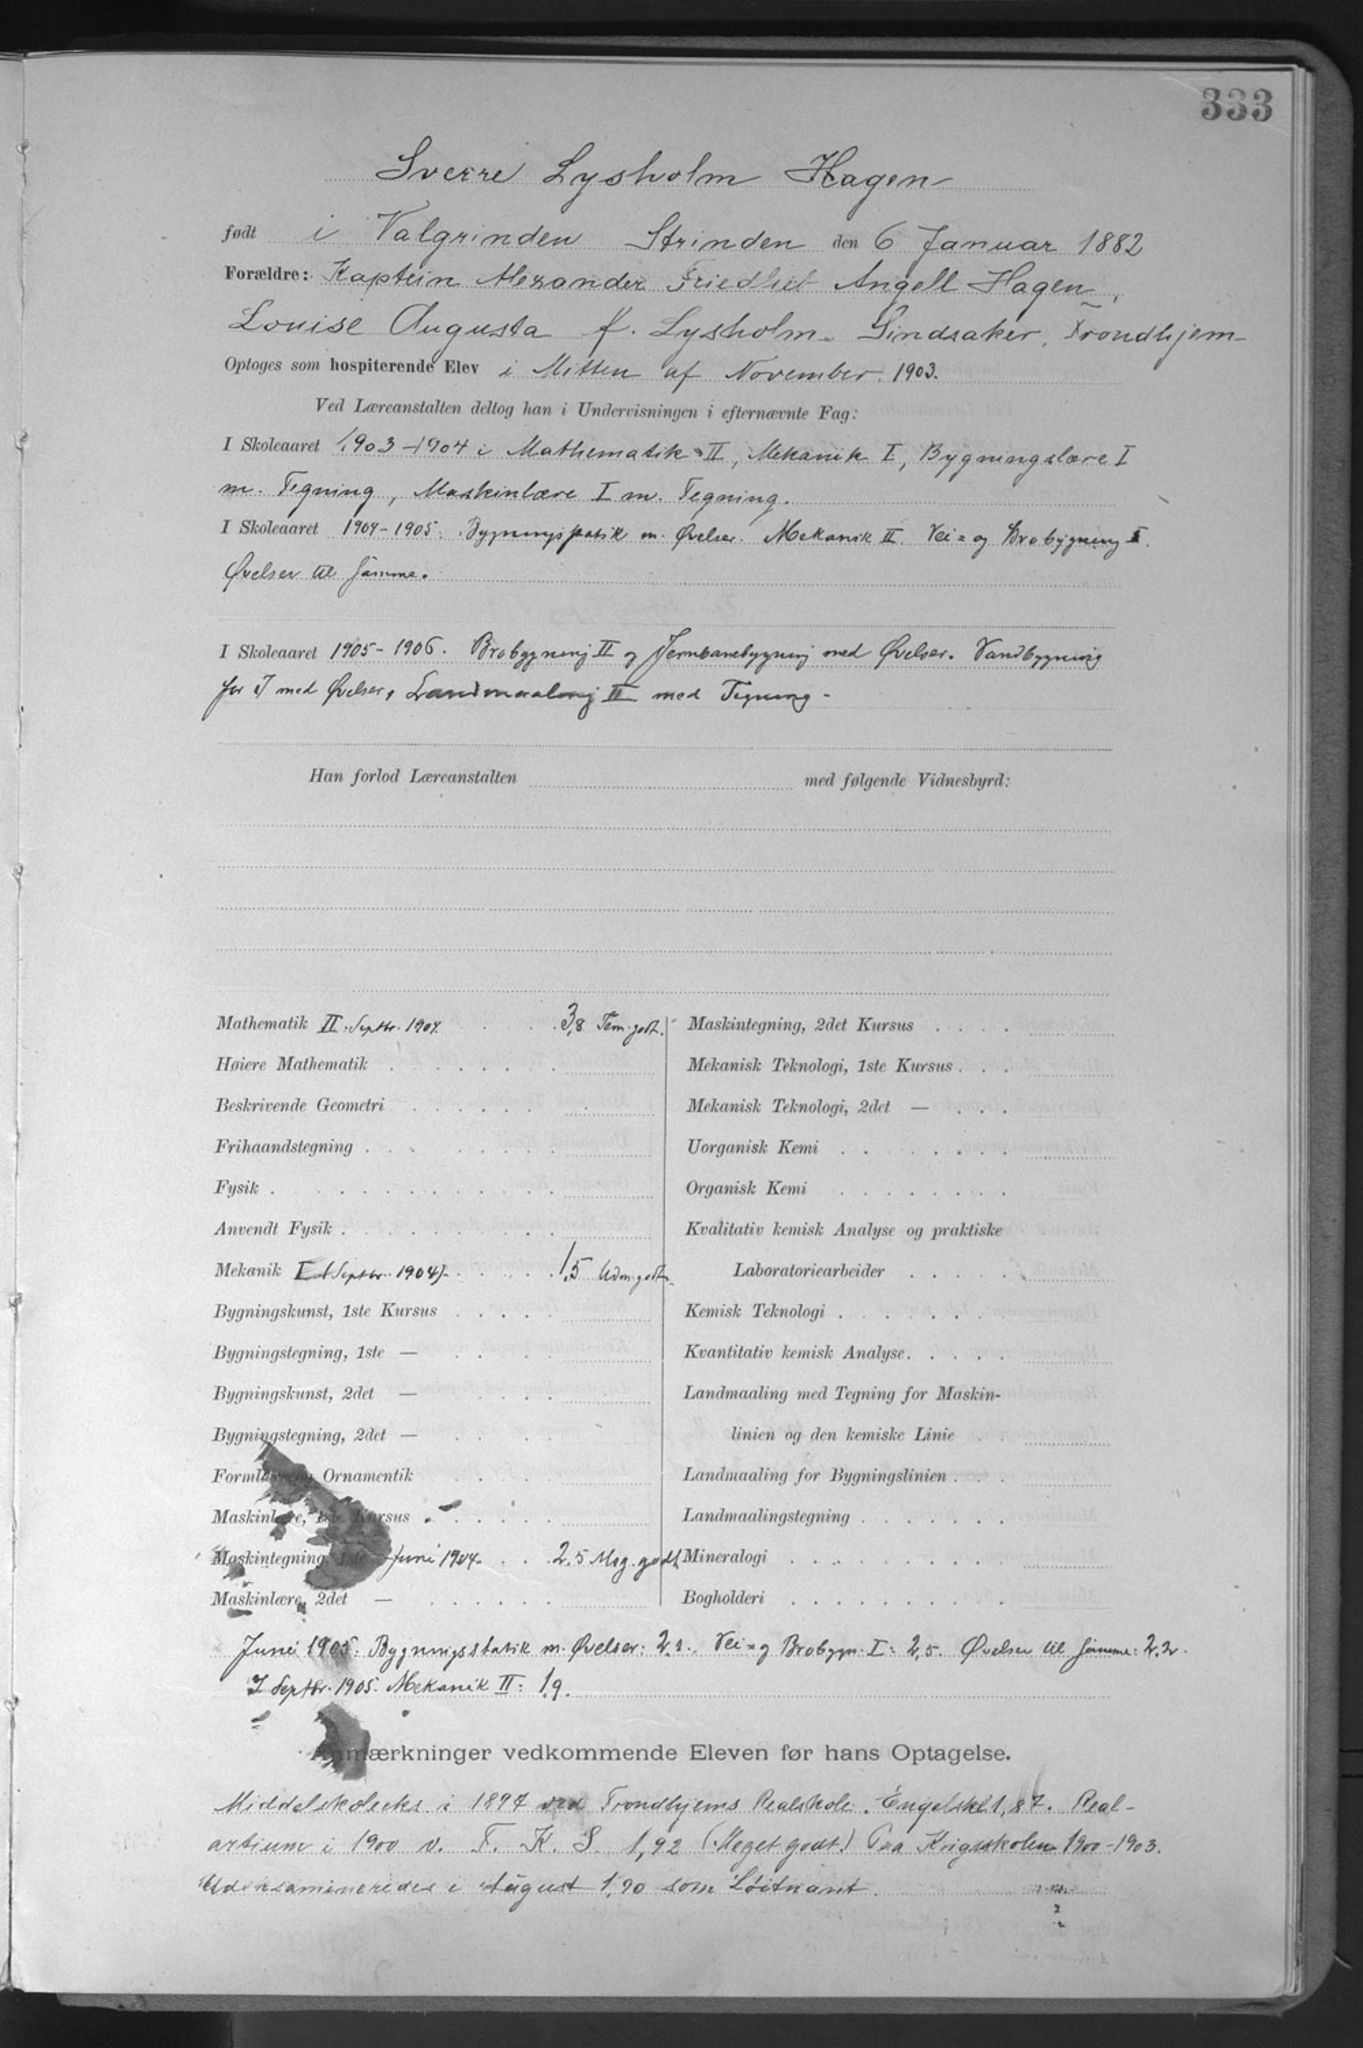 333
Sverre Lysholm Hagen
født i Valgrinden Strinden den 6 Januar 1882
Forældre: Kaptein Alexander Friedlieb Angell Hagen,
Louise Augusta f. Lysholm. Sindsaker, Trondhjem
Optoges som hospiterende Elev i Mitten af November. 1903.
Ved Læreanstalten deltog han i Undervisningen i efternævnte Fag:
I Skoleaaret 1903-1904 i Mathematik II, Mekanik I, Bygningslære I
m. Tegning, Maskinlære I m. Tegning.
I Skoleaaret 1904-1905. Bygningsstatik m. Øvelser. Mekanik II. Vei= og Brobygning I.
Øvelser til samme.
I Skoleaaret 1905-1906. Brobygning II og Jernbanebygning med Øvelser. Vandbygning
for I med Øvelser, Landmaaling II med Tegning.
Han forlod Læreanstalten med følgende Vidnesbyrd:
Mathematik II. Septbr. 1904. 3,8 Tem. godt.
Høiere Mathematik
Beskrivende Geometri
Frihaandstegning
Fysik
Anvendt Fysik
Mekanik I (Septbr. 1904) 1,5 Udm. godt.
Bygningskunst, 1ste Kursus
Bygningstegning, 1ste —
Bygningskunst, 2det —
Bygningstegning, 2det —
Formlære og Ornamentik
Maskinlære, 1ste Kursus
Maskintegning, 1ste — Juni 1904. 2,5 Meg. godt
Maskinlære, 2det —
Maskintegning, 2det Kursus
Mekanisk Teknologi, 1ste Kursus
Mekanisk Teknologi, 2det —
Uorganisk Kemi
Organisk Kemi
Kvalitativ kemisk Analyse og praktiske
Laboratoriearbeider
Kemisk Teknologi
Kvantitativ kemisk Analyse
Landmaaling med Tegning for Maskin-
linien og den kemiske Linie
Landmaaling for Bygningslinien
Landmaalingstegning
Mineralogi
Bogholderi
Juni 1905: Bygningsstatik m. Øvelser: 2,2. Vei= og Brobygn. I: 2,5. Øvelser til samme: 2,2.
I Septbr. 1905. Mekanik II: 1,9.
Anmærkninger vedkommende Eleven før hans Optagelse.
Middelskoleeks i 1897 ved Trondhjems Realskole. Engelsk 1,87. Real-
artium i 1900 v. T. K. S. 1,92 (Meget godt) Paa Krigsskolen 1900-1903.
Udeksamineredes i August 1,70 som Løitnant.